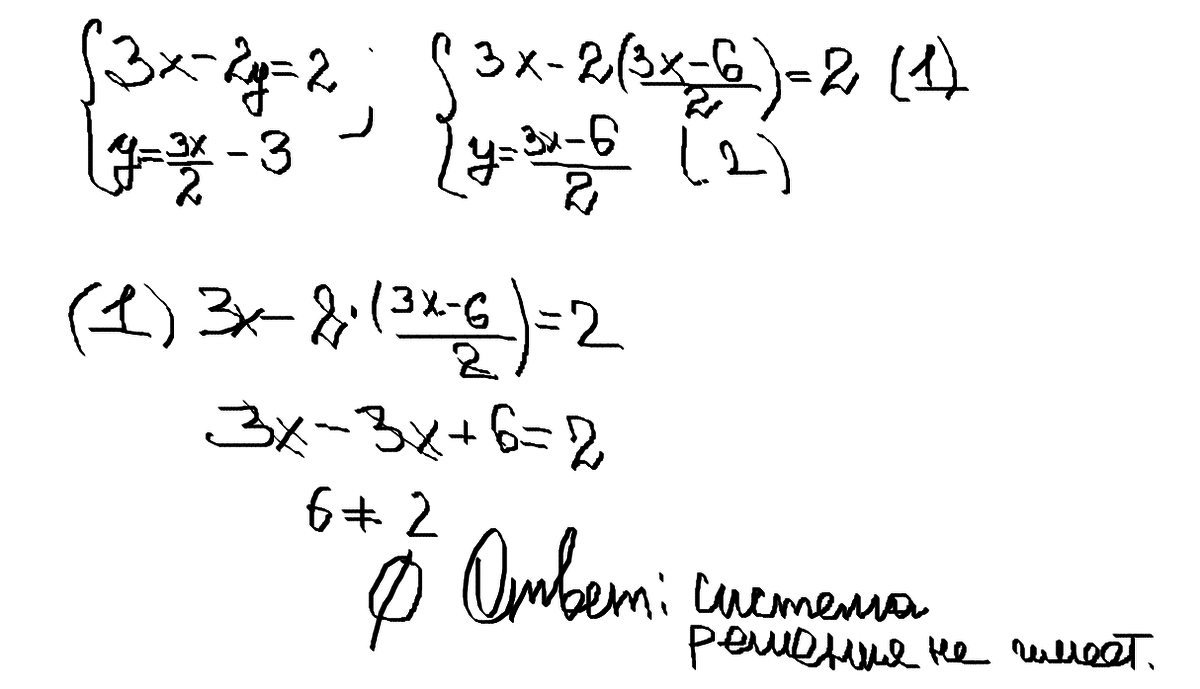 { 3x - 2y = 2 ; { 3x - 2((3x - 6)/2) = 2 (1)
{ y = 3x/2 - 3 { y = (3x - 6)/2 (2)
(1) 3x - 2·((3x - 6)/2) = 2
3x - 3x + 6 = 2
6 ≠ 2
∅ Ответ: система
решения не имеет.